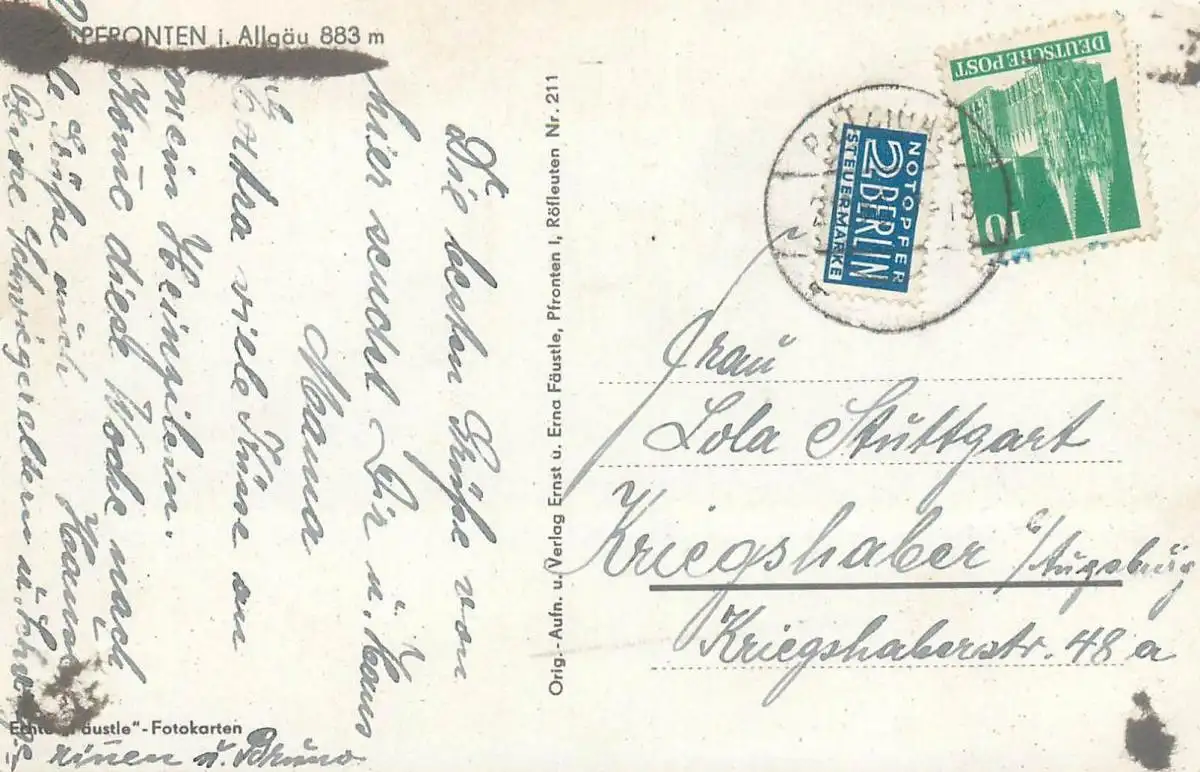 PFRONTEN i. Allgäu 883 m
Die besten Grüße von
hier sendet Dir u. Hans
Mama
Extra viele Küsse an
mein Heinzilein.
Komme diese Woche nach
Hause
Grüße auch
Deine Schwiegereltern u. Schwäge-
rinnen u. Bruno
Echte „Fäustle"-Fotokarten
Orig.-Aufn. u. Verlag Ernst u. Erna Fäustle, Pfronten I, Röfleuten Nr. 211
DEUTSCHE POST
10
NOTOPFER
2 BERLIN
STEUERMARKE
Frau
Lola Stuttgart
Kriegshaber b/Augsburg
Kriegshaberstr. 48 a